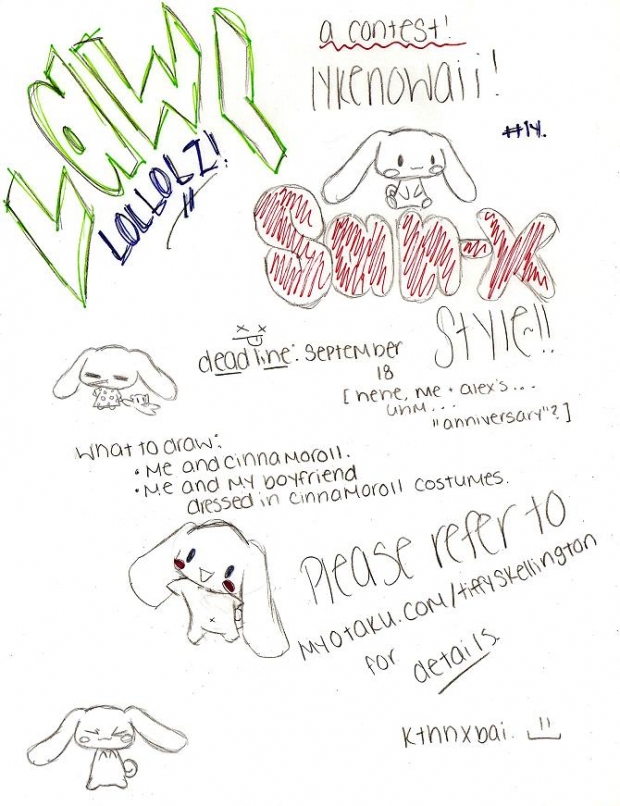 a contest!
lykenowaii!
#14.
LOLLOLZ!
San-x
StYle~!!
deadline: September
18
[hehe, me + alex's...
uhm...
"anniversary"?]
What to draw:
• Me and cinnamoroll.
• Me and My boyfriend
dressed in cinnamoroll costumes.
Please refer to
Myotaku.com/tiffyskellington
for details.
kthnxbai.